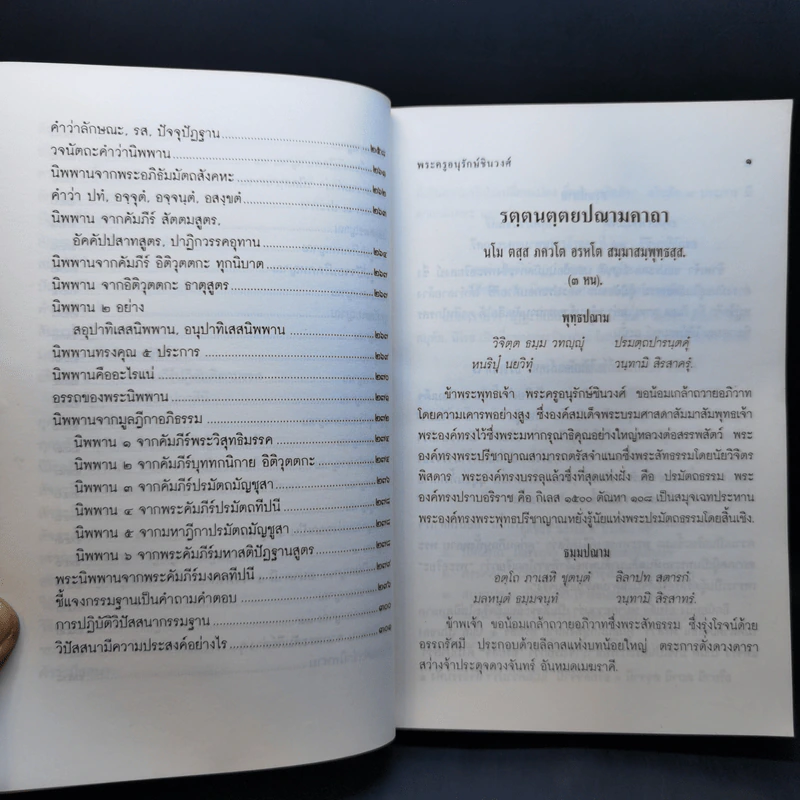 คำว่าลักษณะ, รส, ปัจจุปัฏฐาน ๒๕๘
วจนัตถะคำว่านิพพาน ๒๖๑
นิพพานจากพระอภิธัมมัตถสังคหะ ๒๖๒
คำว่า ปทํ, อจฺจุตํ, อจฺจนฺตํ, อสงฺขตํ ๒๖๓
นิพพาน จากคัมภีร์ สัตตมสูตร,
อัคคัปปสาทสูตร, ปาฏิกวรรคอุทาน ๒๖๔
นิพพานจากคัมภีร์ อิติวุตตกะ ทุกนิบาต ๒๖๗
นิพพาน จากอิติวุตตกะ ธาตุสูตร ๒๖๗
นิพพาน ๒ อย่าง
สอุปาทิเสสนิพพาน, อนุปาทิเสสนิพพาน ๒๖๗
นิพพานทรงคุณ ๕ ประการ
นิพพานคืออะไรแน่ ๒๗๐
อรรถของพระนิพพาน ๒๗๑
นิพพานจากมูลฎีกาอภิธรรม ๒๗๒
นิพพาน ๑ จากคัมภีร์พระวิสุทธิมรรค ๒๗๔
นิพพาน ๒ จากคัมภีร์ขุททกนิกาย อิติวุตตกะ ๒๗๕
นิพพาน ๓ จากคัมภีร์ปรมัตถมัญชูสา ๒๗๖
นิพพาน ๔ จากพระคัมภีร์ปรมัตถทีปนี ๒๗๘
นิพพาน ๕ จากมหาฎีกาปรมัตถมัญชูสา ๒๗๘
นิพพาน ๖ จากพระคัมภีร์มหาสติปัฏฐานสูตร ๒๗๘
พระนิพพานจากพระคัมภีร์มงคลทีปนี ๒๗๙
ชี้แจงกรรมฐานเป็นคำถามคำตอบ ๒๙๖
การปฏิบัติวิปัสสนากรรมฐาน ๓๐๑
วิปัสสนามีความประสงค์อย่างไร ๓๐๑
พระครูอนุรักษ์ชินวงศ์ ๑
รตฺตนตฺตยปณามคาถา
นโม ตสฺส ภควโต อรหโต สมฺมาสมฺพุทฺธสฺส.
(๓ หน).
พุทฺธปณาม
วิจิตฺต ธมฺม วทญฺญุํ ปรมตฺถปารนฺตคุํ
หนริปุํ นยวิทุํ วนฺทามิ สิรสาครุํ.
ข้าพระพุทธเจ้า พระครูอนุรักษ์ชินวงศ์ ขอน้อมเกล้าถวายอภิวาท
โดยความเคารพอย่างสูง ซึ่งองค์สมเด็จพระบรมศาสดาสัมมาสัมพุทธเจ้า
พระองค์ทรงไว้ซึ่งพระมหากรุณาธิคุณอย่างใหญ่หลวงต่อสรรพสัตว์ พระ
องค์ทรงพระปรีชาญาณสามารถตรัสจำแนกซึ่งพระสัทธรรมโดยนัยวิจิตร
พิสดาร พระองค์ทรงบรรลุแล้วซึ่งที่สุดแห่งฝั่ง คือ ปรมัตถธรรม พระ
องค์ทรงปราบอริราช คือ กิเลส ๑๕๐๐ ตัณหา ๑๐๘ เป็นสมุจเฉทประหาน
พระองค์ทรงพระพุทธปรีชาญาณหยั่งรู้นัยแห่งพระปรมัตถธรรมโดยสิ้นเชิง.
ธมฺมปณาม
อตฺโถ ภาเสหิ ชุตนฺตํ ลิลาปท สตารกํ
มลหนตํ ธมฺมจนฺทํ วนฺทามิ สิรฺสาทรํ.
ข้าพเจ้า ขอน้อมเกล้าถวายอภิวาทซึ่งพระสัทธรรม ซึ่งรุ่งโรจน์ด้วย
อรรถรัศมี ประกอบด้วยลิลาสแห่งบทน้อยใหญ่ ตระการดั่งดวงดารา
สว่างจ้าประดุจดวงจันทร์ อันหมดเมฆราคี.